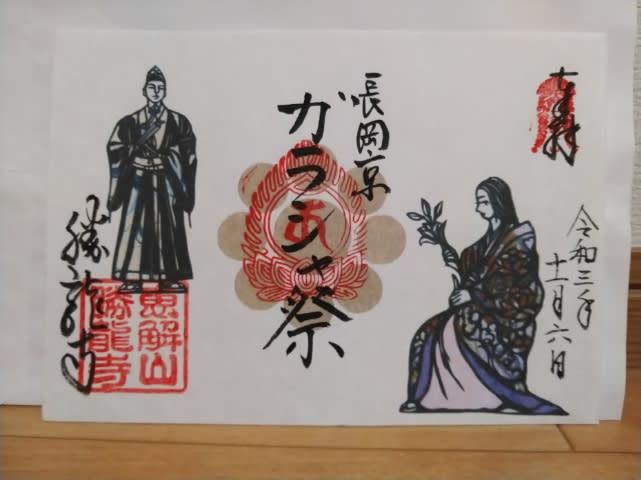 奉拝
令和三年
十一月六日
長岡京
ガラシャ祭
勝龍寺
恵解山
勝龍寺